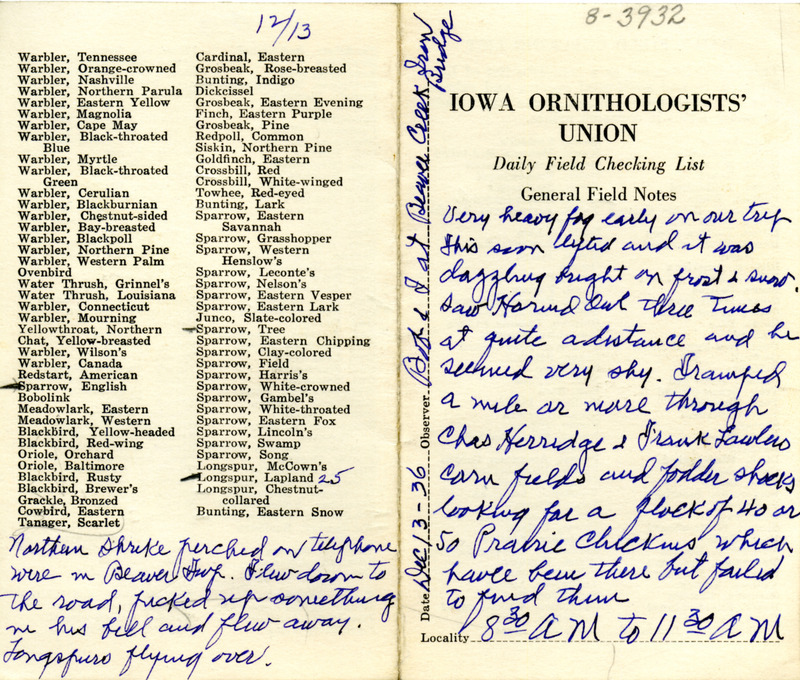 12/13
Warbler, Tennessee
Warbler, Orange-crowned
Warbler, Nashville
Warbler, Northern Parula
Warbler, Eastern Yellow
Warbler, Magnolia
Warbler, Cape May
Warbler, Black-throated
Blue
Warbler, Myrtle
Warbler, Black-throated
Green
Warbler, Cerulian
Warbler, Blackburnian
Warbler, Chestnut-sided
Warbler, Bay-breasted
Warbler, Blackpoll
Warbler, Northern Pine
Warbler, Western Palm
Ovenbird
Water Thrush, Grinnel's
Water Thrush, Louisiana
Warbler, Connecticut
Warbler, Mourning
Yellowthroat, Northern
Chat, Yellow-breasted
Warbler, Wilson's
Warbler, Canada
Redstart, American
Sparrow, English
Bobolink
Meadowlark, Eastern
Meadowlark, Western
Blackbird, Yellow-headed
Blackbird, Red-wing
Oriole, Orchard
Oriole, Baltimore
Blackbird, Rusty
Blackbird, Brewer's
Grackle, Bronzed
Cowbird, Eastern
Tanager, Scarlet
Cardinal, Eastern
Grosbeak, Rose-breasted
Bunting, Indigo
Dickcissel
Grosbeak, Eastern Evening
Finch, Eastern Purple
Grosbeak, Pine
Redpoll, Common
Siskin, Northern Pine
Goldfinch, Eastern
Crossbill, Red
Crossbill, White-winged
Towhee, Red-eyed
Bunting, Lark
Sparrow, Eastern
Savannah
Sparrow, Grasshopper
Sparrow, Western
Henslow's
Sparrow, Leconte's
Sparrow, Nelson's
Sparrow, Eastern Vesper
Sparrow, Eastern Lark
Junco, Slate-colored
Sparrow, Tree
Sparrow, Eastern Chipping
Sparrow, Clay-colored
Sparrow, Field
Sparrow, Harris's
Sparrow, White-crowned
Sparrow, Gambel's
Sparrow, White-throated
Sparrow, Eastern Fox
Sparrow, Lincoln's
Sparrow, Swamp
Sparrow, Song
Longspur, McCown's
Longspur, Lapland 25
Longspur, Chestnut-
collared
Bunting, Eastern Snow
Northern Shrike perched on telephone
wire in Beaver Twp. Flew down to
the road, picked up something
in his bill and flew away.
Longspurs flying over.
8-3932
IOWA ORNITHOLOGISTS'
UNION
Daily Field Checking List
General Field Notes
Very heavy fog early on our trip
This soon lifted and it was
dazzling bright on frost & snow.
Saw Horned Owl three times
at quite a distance and he
seemed very shy. Tramped
a mile or more through
Chas Herridge & Frank Lawlers
corn fields and fodder shocks
looking for a flock of 40 or
50 Prairie Chickens which
have been there but failed
to find them
Locality 8 30 A M to 11 30 A M
Date Dec 13-36 Observer Bob & I at Beaver Creek Iron
Bridge